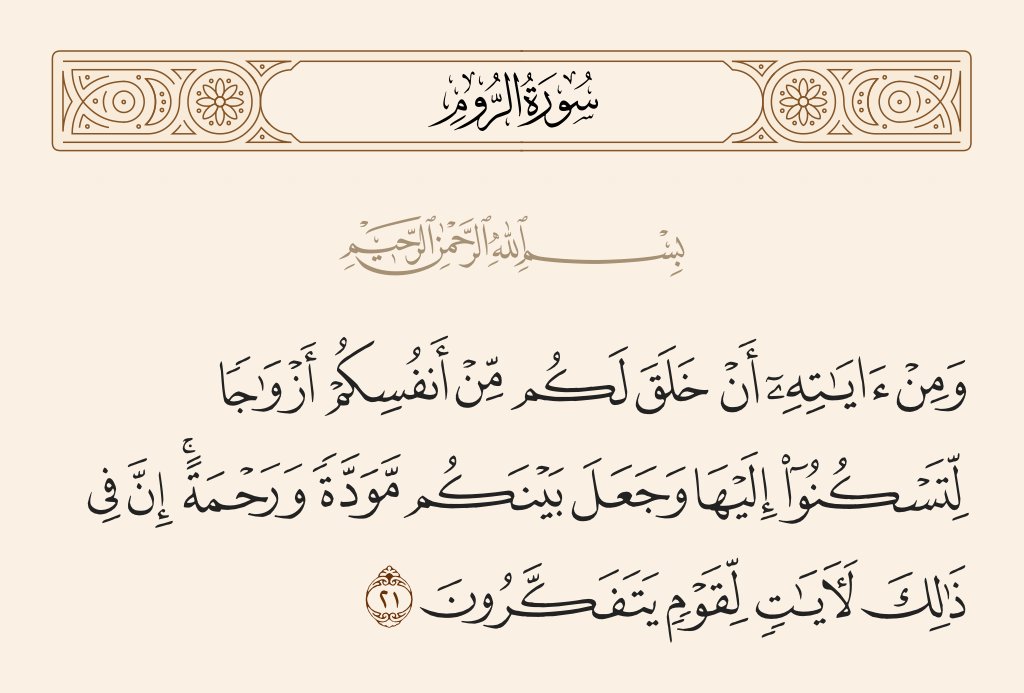 سُورَةُ الرُّومِ
بِسْمِ ٱللَّهِ ٱلرَّحْمَٰنِ ٱلرَّحِيمِ
وَمِنْ ءَايَـٰتِهِۦٓ أَنْ خَلَقَ لَكُم مِّنْ أَنفُسِكُمْ أَزْوَٰجًا
لِّتَسْكُنُوٓا۟ إِلَيْهَا وَجَعَلَ بَيْنَكُم مَّوَدَّةً وَرَحْمَةً ۚ إِنَّ فِى
ذَٰلِكَ لَـَٔايَـٰتٍ لِّقَوْمٍ يَتَفَكَّرُونَ ٢١